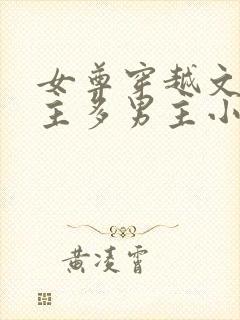 女尊穿越文
主多男主小
黄凌霄